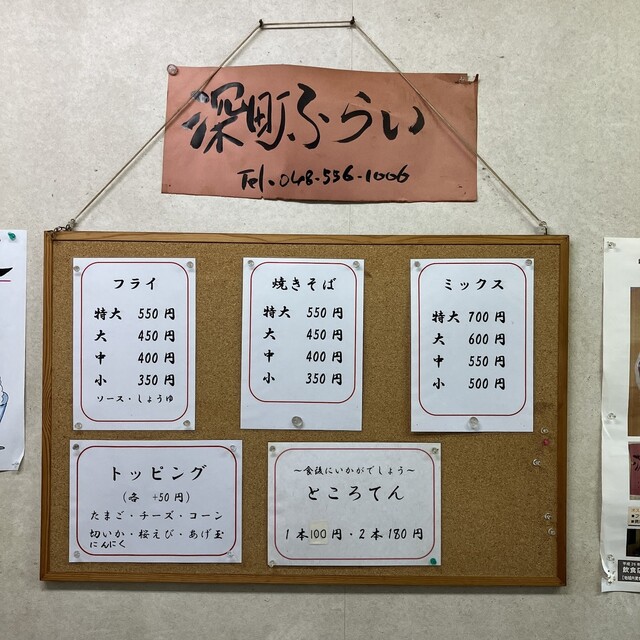 深町ふらい
Tel. 048-556-1006
フライ
特大 550円
大 450円
中 400円
小 350円
ソース・しょうゆ
焼きそば
特大 550円
大 450円
中 400円
小 350円
ミックス
特大 700円
大 600円
中 550円
小 500円
トッピング
(各 +50円)
たまご・チーズ・コーン
切いか・桜えび・あげ玉
にんにく
~食後にいかがでしょう~
ところてん
1本100円・2本180円